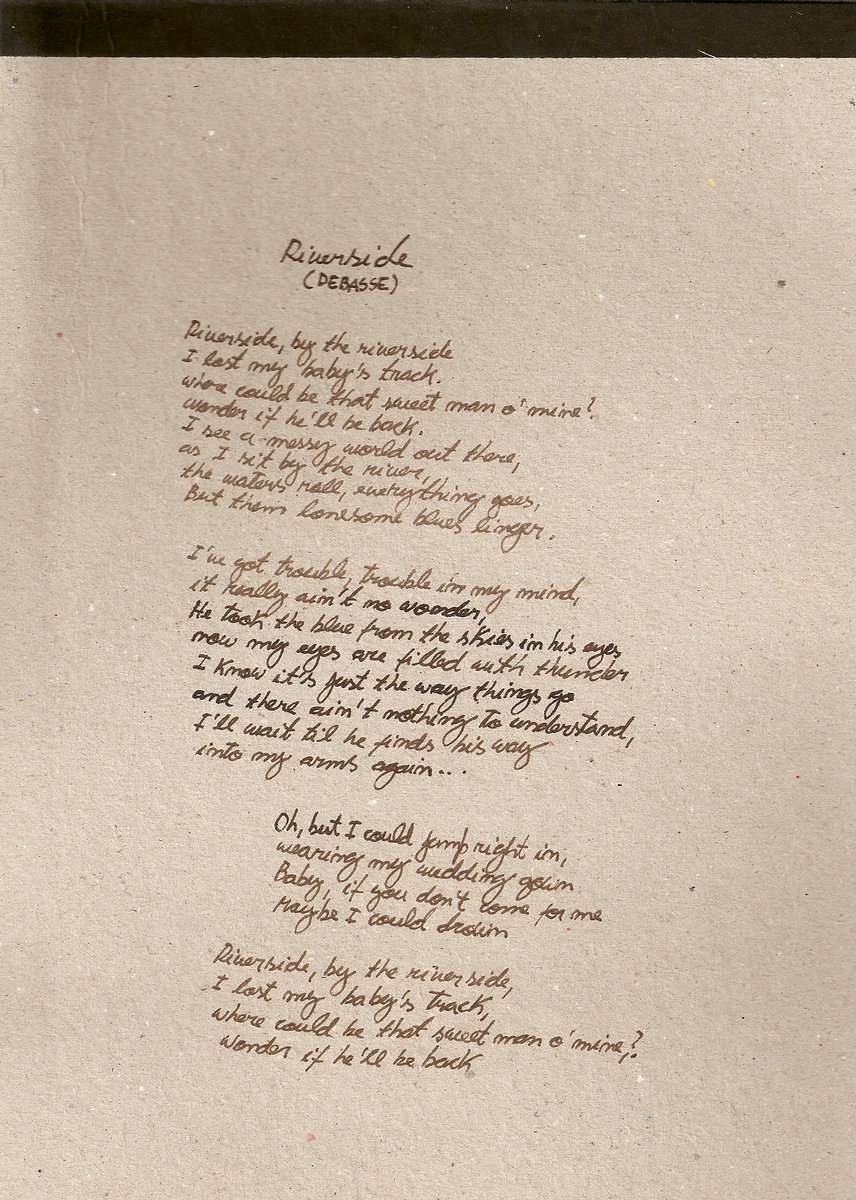 Riverside
(DEBASSE)
Riverside, by the riverside
I lost my baby's track.
where could be that sweet man o' mine?
wonder if he'll be back.
I see a messy world out there,
as I sit by the river,
the waters roll, everything goes,
But them lonesome blues linger.
I've got trouble, trouble in my mind,
it really ain't no wonder,
He took the blue from the skies in his eyes
now my eyes are filled with thunder
I know it's just the way things go
and there ain't nothing to understand,
I'll wait til he finds his way
into my arms again...
Oh, but I could jump right in,
wearing my wedding gown
Baby, if you don't come for me
Maybe I could drown
Riverside, by the riverside,
I lost my baby's track,
where could be that sweet man o' mine?
wonder if he'll be back